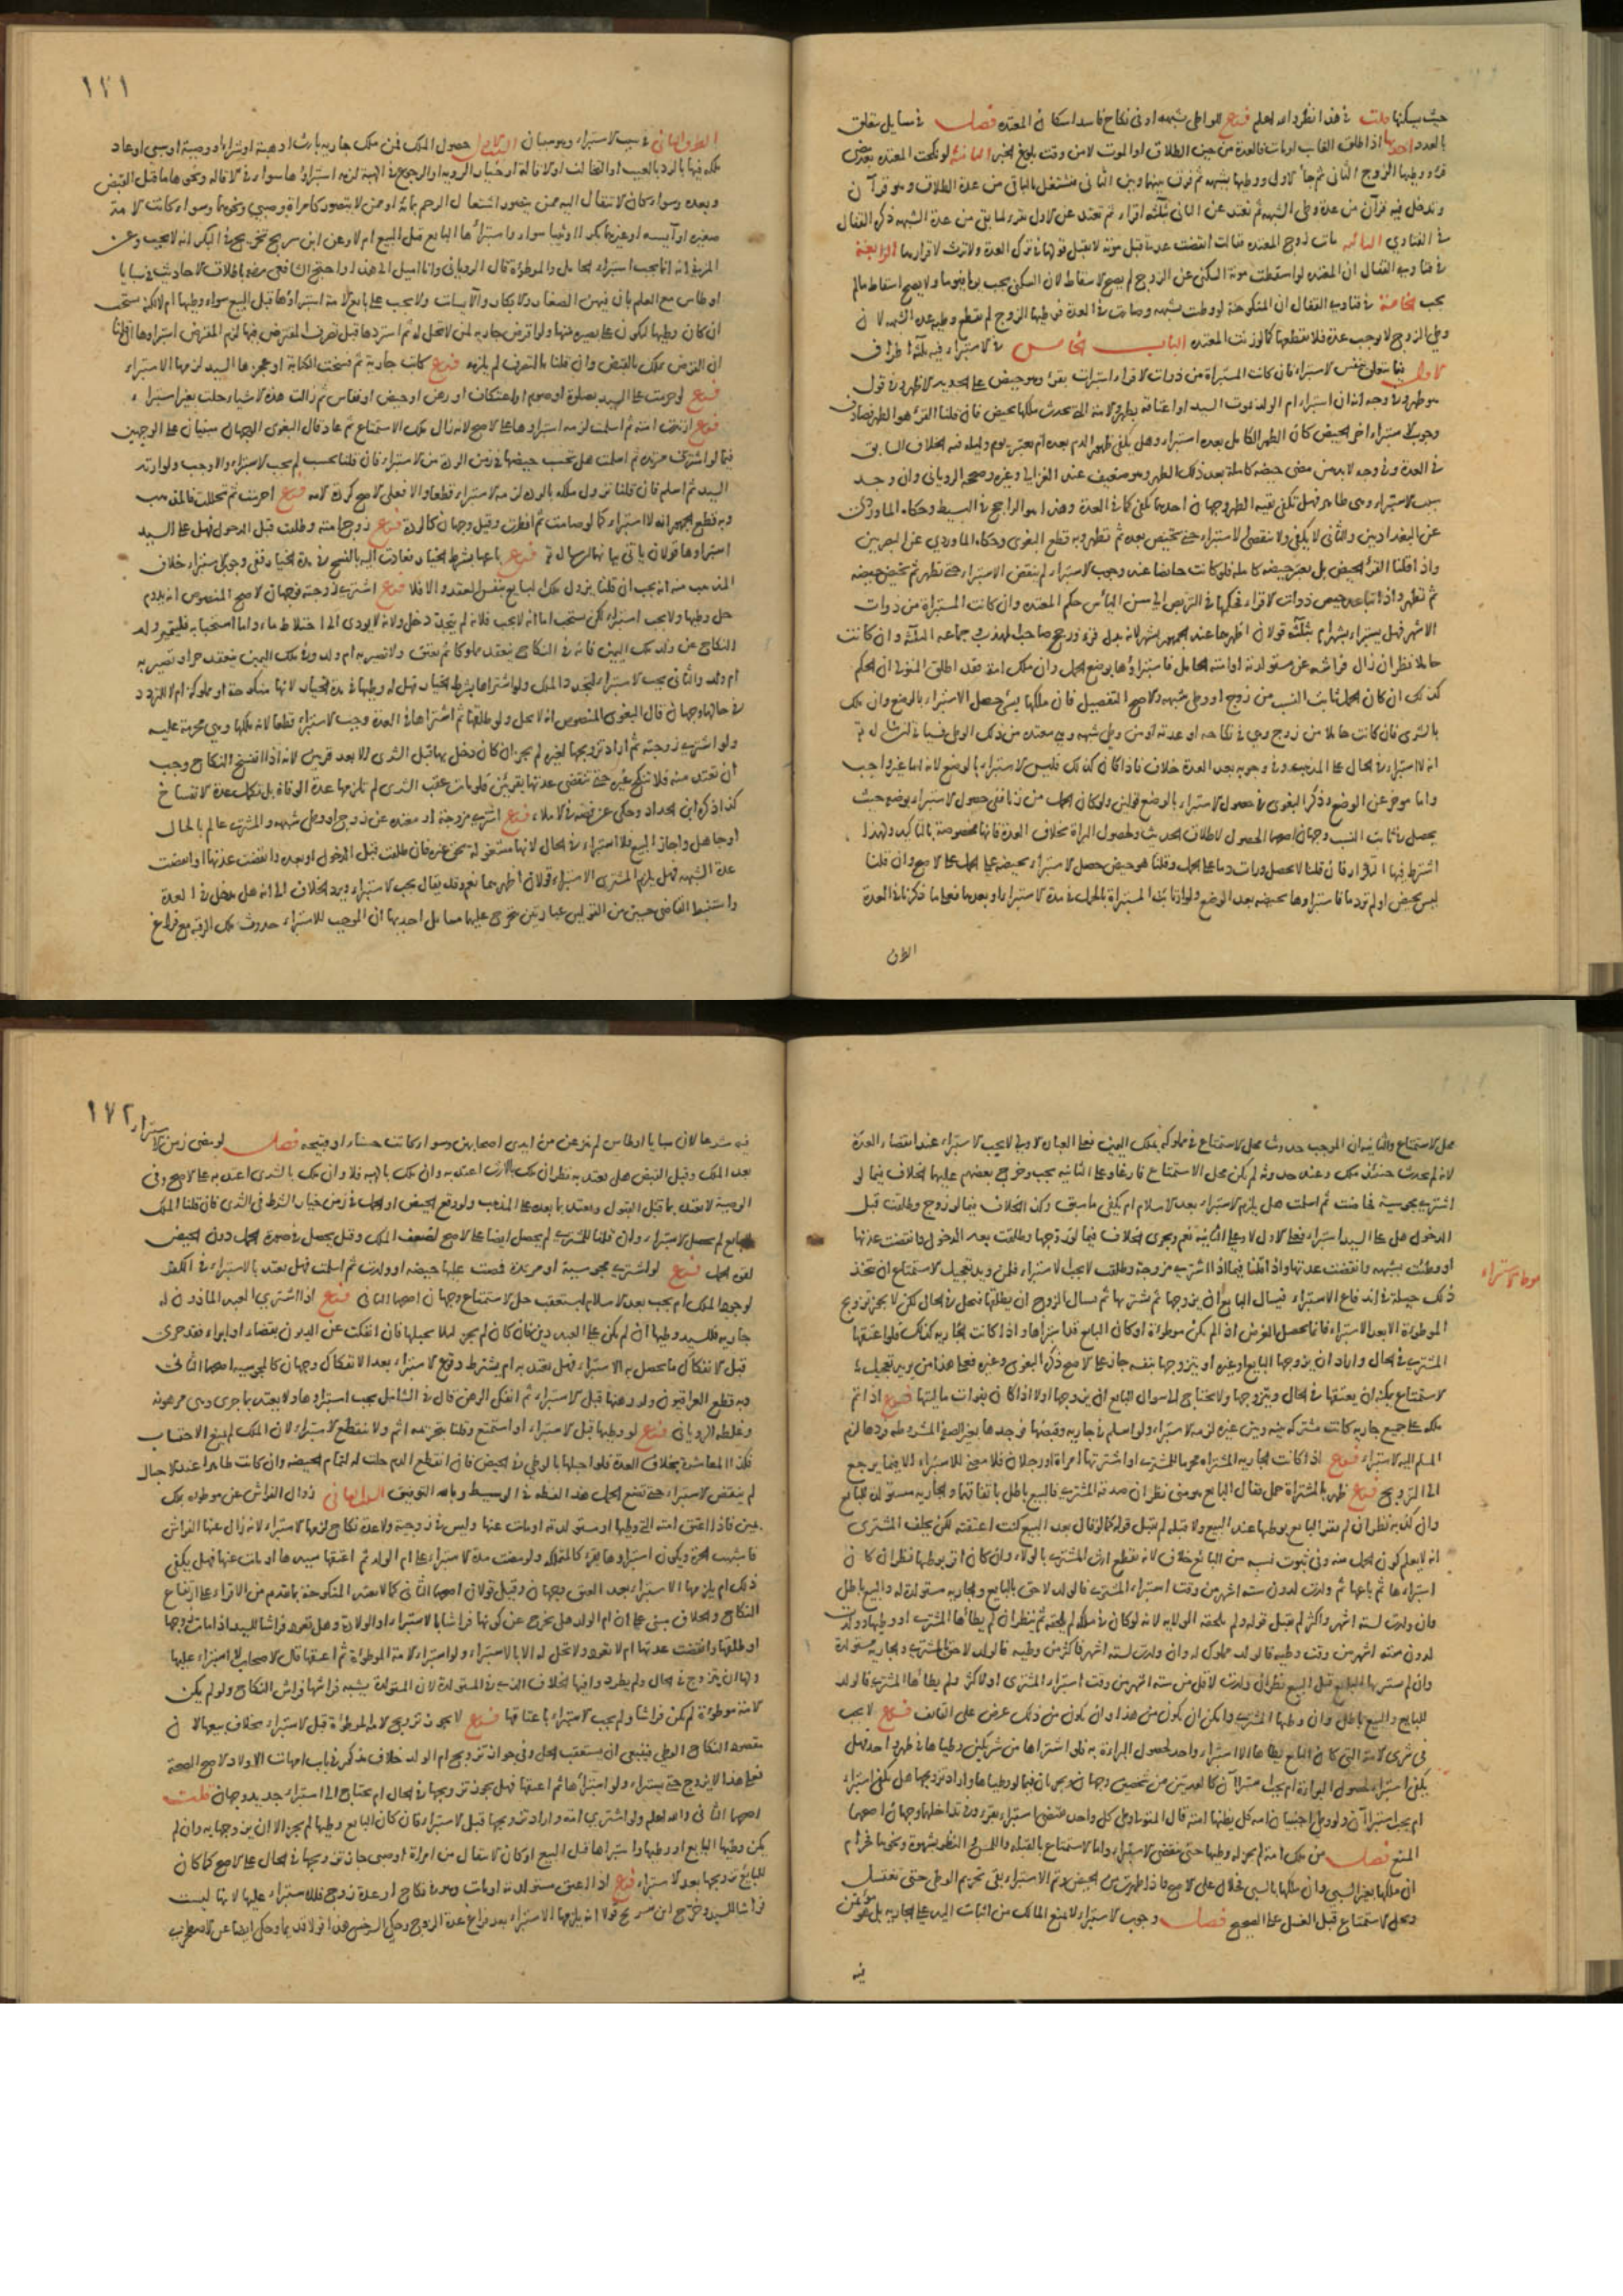 حيث يسكنها قلت في هذا نظر والله اعلم فرع الواطي بشبهة او في نكاح فاسد اسكان المعتدة فصل في مسايل تتعلق
بالعدد احديها اذا طلق الغايب او مات فالعدة من حين الطلاق او الموت لا من وقت بلوغ الخبر الثانية لو نكحت المعتدة بعد مضي
قرء ووطيها الزوج الثاني ثم جاء الاول ووطيها بشبهة ثم فرق بينهما وبين الثاني فتشتغل بالباقي من عدة الطلاق وهو قرآن
وتدخل فيه قرآن من عدة وطي الشبهة ثم تعتد عن الثاني بثلثة اقراء ثم تعتد عن الاول بقرء لما بقي من عدة الشبهة ذكره القفال
في الفتاوي الثالثة مات زوج المعتدة فقالت انقضت عدتي قبل موته لا يقبل قولها في ترك العدة ولا ترث لاقرارها الرابعة
في فتاوى القفال ان المعتدة لو اسقطت مونة السكنى عن الزوج لم يصح الاسقاط لان السكنى يجب يوما فيوما ولا يصح اسقاط مالم
يجب الخامسة في فتاوى القفال ان المنكوحة لو وطيت بشبهة وصارت في العدة فوطيها الزوج لم تنقطع بوطيه عدة الشبهة لان
وطي الزوج لا يوجب عدة فلا يقطعها كما لو زنت المعتدة الباب الخامس في الاستبراء فيه ثلثة اطراف
الاول فيما يتعلق بنفس الاستبراء فان كانت المستبراة من ذوات الاقراء استبرات بقرء وهو حيض على الجديد الاظهر وفي قول
هو طهر وفي وجه ان استبراء ام الولد بموت السيد او اعتاقه بطهر والامة التي تحدث ملكها بحيض فان قلنا القرء هو الطهر فصادف
وجوب الاستبراء اخر الحيض كان الطهر الكامل بعده استبراء وهل يكفي ظهور الدم بعده ام يعتبر يوم وليلة فيه الخلاف السابق
في العدة وفي وجه لا بد من مضي حيضة كاملة بعد ذلك الطهر وهو ضعيف عند الغزالي وغيره وصححه الروياني وان وجد
سبب الاستبراء وهي طاهر فهل تكفي بقية الطهر وجهان احدهما تكفي كما في العدة وهذا هو الراجح في البسيط وحكاه الماوردي
عن البغداديين والثاني لا يكفي ولا ينقضي الاستبراء حتى تحيض بعده ثم تطهر وبه قطع البغوي وحكاه الماوردي عن البصريين
واذا قلنا القرء الحيض بل يعتبر حيضة كاملة فلو كانت حايضا عند وجوب الاستبراء لم ينقض الاستبراء حتى تطهر ثم تحيض حيضة
ثم تطهر واذا تباعد حيض ذوات الاقراء فحكمها في التربص الى سن الياس حكم المعتدة وان كانت المستبراة من ذوات
الاشهر فهل يستبراء بشهر ام بثلثة قولان اظهرهما عند الجمهور بشهر لانه بدل قرء ورجح صاحب المهذب وجماعة الثلثة وان كانت
حاملا نظر ان زال فراشه عن مستولدته او امته الحامل فاستبراؤها بوضع الحمل وان ملك امة فقد اطلق المتولي ان الحكم
كذلك ان كان الحمل ثابت النسب من زوج او وطي شبهة والاصح التفصيل فان ملكها بسبي حصل الاستبراء بالوضع وان ملك
بالشرى فان كانت حاملا من زوج وهي في نكاحه او عدته او من وطي شبهة وهي معتدة من ذلك الوطي
انه لا استبراء في الحال على المذهب وفي وجوبه بعد العدة خلاف فاذا كان كذلك فليس الاستبراء بالوضع لانه اما غير واجب
واما موخر عن الوضع وذكر البغوي في حصول الاستبراء بالوضع قولين ولو كان الحمل من زنا ففي حصول الاستبراء بوضعه حيث
يحصل في ثابت النسب وجهان اصحهما الحصول لاطلاق الحديث ولحصول البراة بخلاف العدة فانها مخصوصة بالتاكيد ولهذا
اشترط فيها التكرار فان قلنا لا يحصل ورات دما على الحمل وقلنا هو حيض حصل الاستبراء بحيضة على الحمل على الاصح وان قلنا
ليس بحيض او لم تر دما فاستبراوها بحيضة بعد الوضع ولو ارتابت المستبراة بالحمل في مدة الاستبراء او بعدها فعلى ما ذكرنا في العدة
الطرف
١٧١
الطرف الثاني في سبب الاستبراء وهو سببان الاول حصول الملك فمن ملك جارية بارث او هبة او شراء او وصية او سبي او عاد
ملكه فيها بالرد بالعيب او التحالف او الاقالة او خيار الروية او الرجوع في الهبة لزمه استبراؤها سواء في الاقالة ونحوها ما قبل القبض
وبعده وسواء كان الانتقال اليه ممن يتصور اشتغال الرحم بمائه او ممن لا يتصور كامراة وصبي ونحوهما وسواء كانت الامة
صغيرة او آيسة او غيرهما بكرا او ثيبا سواء استبراها البايع قبل البيع ام لا وعن ابن سريج تخريج في البكر انه لا يجب وعن
المزني انه انما يجب استبراء الحامل والموطوءة قال الروياني وانا اميل الى هذا واحتج الشافعي رضه باطلاق الاحاديث في سبايا
اوطاس مع العلم بان فيهن الصغار والابكار والآيسات ولا يجب على بايع الامة استبراؤها قبل البيع سواء وطيها ام لا لكنه يستحب
ان كان وطيها ليكون على بصيرة منها ولو اقرض جارية لمن لا تحل له ثم استردها قبل تصرف المقترض فيها لزم المقرض استبراوها ان قلنا
ان القرض يملك بالقبض وان قلنا بالتصرف لم يلزمه فرع كاتب جارية ثم فسخت الكتابة او عجزها السيد لزمها الاستبراء
فرع لو حرمت على السيد بصلوة او صوم او اعتكاف او رهن او حيض او نفاس ثم زالت هذه الاشياء حلت بغير استبراء
فرع ارتدت امته ثم اسلمت لزمه استبراوها على الاصح لانه زال ملك الاستمتاع ثم عاد قال البغوي الوجهان مبنيان على الوجهين
فيما لو اشترى مرتدة ثم اسلمت هل تحسب حيضها في زمن الردة من الاستبراء فان قلنا يحسب لم يجب الاستبراء والا وجب ولو ارتد
السيد ثم اسلم فان قلنا بزوال ملكه بالردة لزمه الاستبراء قطعا والا فعلى الاصح كردة الامة فرع احرمت ثم تحللت فالمذهب
وبه قطع الجمهور انه لا استبراء كما لو صامت ثم افطرت وقيل وجهان كالردة فرع زوج امته وطلقت قبل الدخول فهل على السيد
استبراوها قولان ياتي بيانهما فرع باعها بشرط الخيار فعادت اليه بالفسخ في مدة الخيار ففي وجوب الاستبراء خلاف
المذهب منه انه يجب ان قلنا يزول ملك البايع بنفس العقد والا فلا فرع اشترى زوجته فوجهان الاصح المنصوص انه يدوم
حل وطيها ولا يجب استبراء لكن يستحب اما انه لا يجب فلانه لم يتجدد حل ولانه لا يودي الى اختلاط ماء واما استحبابه فليتميز ولد
النكاح عن ولد ملك اليمين فانه في النكاح ينعقد مملوكا ثم يعتق ولا تصير به ام ولد وفي ملك اليمين ينعقد حرا وتصير به
ام ولد والثاني يجب الاستبراء لتجدد الملك ولو اشتراها بشرط الخيار فهل له وطيها في مدة الخيار لانها منكوحة او مملوكة ام لا للتردد
في حالها وجهان قال البغوي المنصوص انه لا يحل ولو طلقها ثم اشتراها في العدة وجب الاستبراء قطعا لانه ملكها وهي محرمة عليه
ولو اشترى زوجته ثم اراد تزويجها لغيره لم يجز ان كان دخل بها قبل الشرى الا بعد قرءين لانه اذا انفسخ النكاح وجب
ان تعتد منه فلا تنكح غيره حتى تنقضي عدتها بقرءين فلو مات عقب الشرى لم تلزمها عدة الوفاة بل تكمل عدة الانفساخ
كذا ذكره ابن الحداد وحكي عن نصه في الاملاء فرع اشترى مزوجة او معتدة عن زوج او وطي شبهة والمشتري عالم بالحال
او جاهل واجاز البيع فلا استبراء في الحال لانها مشغولة بحق غيره فان طلقت قبل الدخول او بعده وانقضت عدتها او انقضت
عدة الشبهة فهل يلزم المشتري الاستبراء قولان اظهرهما نعم وقد يقال يجب الاستبراء ويرد الخلاف الى انه هل يدخل في العدة
واستنبط القاضي حسين من القولين عبارتين تخرج عليهما مسايل احديهما ان الموجب للاستبراء حدوث ملك الرقبة مع فراغ
محل الاستمتاع والثانية ان الموجب حدوث حل الاستمتاع في مملوكة بملك اليمين فعلى العبارة الاولى لا يجب الاستبراء عند انقضاء العدة
لانه لم يحدث حينئذ ملك وعند حدوثه لم يكن محل الاستمتاع فارغا وعلى الثانية يجب وخرج بعضهم عليهما الخلاف فيما لو
اشترى مجوسية فحاضت ثم اسلمت هل يلزم الاستبراء بعد الاسلام ام يكفي ما سبق وكذا الخلاف فيما لو زوج وطلقت قبل
الدخول هل على السيد استبراء فعلى الاول لا وعلى الثانية نعم ويجري الخلاف فيما لو زوجها وطلقت بعد الدخول وانقضت عدتها
او وطئت بشبهة وانقضت عدتها واذا قلنا فيما اذا اشترى مزوجة وطلقت لا يجب الاستبراء فلمن يريد تعجيل الاستمتاع ان يتخذ
ذلك حيلة في اندفاع الاستبراء فيسال البايع ان يزوجها ثم يشتريها ثم يسال الزوج ان يطلقها فتحل في الحال لكن لا يجوز تزويج
الموطوءة الا بعد الاستبراء فانما يحصل الغرض اذا لم تكن موطوءة او كان البايع قد استبراها واذا كانت الجارية كذلك فلو اعتقها
المشتري في الحال واراد ان يزوجها البايع او غيره او يتزوجها بنفسه جاز على الاصح ذكره البغوي وغيره فعلى هذا من يريد تعجيل
الاستمتاع يمكنه ان يعتقها في الحال ويتزوجها ولا يحتاج الى سوال البايع ان يزوجها اولا اذا كان بفوات ماليتها فرع اذا تم
ملكه على جميع جارية كانت مشتركة بينه وبين غيره لزمه الاستبراء ولو اسلم في جارية وقبضها فوجدها بغير الصفة المشروطة وردها لزم
المسلم اليه الاستبراء فرع اذا كانت الجارية المشتراة محرما للمشتري او اشترتها امراة او رجلان فلا معنى للاستبراء الا فيما يرجع
الى التزويج فرع ظهر بالمشتراة حمل فقال البايع هو مني نظر ان صدقه المشتري فالبيع باطل باتفاقهما والجارية مستولدة للبايع
وان كذبه نظر ان لم يقر البايع بوطيها عند البيع ولا قبله لم يقبل قوله كما لو قال بعد البيع كنت اعتقته لكن يحلف المشتري
انه لا يعلم كون الحمل منه وفي ثبوت نسبه من البايع خلاف لانه يقطع ارث المشتري بالولاء وان كان اقر بوطيها نظر ان كان
استبراها ثم باعها ثم ولدت لدون ستة اشهر من وقت استبراء المشتري فالولد لاحق بالبايع والجارية مستولدة له والبيع باطل
وان ولدت لستة اشهر واكثر لم يقبل قوله ولم يلحقه الولد لانه لو كان في ملكه لم يلحقه ثم ينظر ان لم يطاها المشتري او وطيها وولدت
لدون ستة اشهر من وقت وطيه فالولد مملوك له وان ولدت لستة اشهر فاكثر من وطيه فالولد لاحق بالمشتري والجارية مستولدة
وان لم يستبريها البايع قبل البيع نظر ان ولدت لاقل من ستة اشهر من وقت استبراء المشتري او لاكثر ولم يطاها المشتري فالولد
للبايع والبيع باطل وان وطيها المشتري وامكن ان يكون من هذا وان يكون من ذلك عرض على القايف فرع لا يجب
في شرى الامة التي كان البايع يطاها الا استبراء واحد لحصول البراءة به فلو اشتراها من شريكين وطياها في طهر واحد فهل
يكفي استبراء لحصول البراءة ام يجب استبراآن كالعدتين من شخصين وجهان ويجريان فيما لو وطياها وارادا تزويجها هل يكفي استبراء
ام يجب استبراآن ولو وطي اجنبيان امة كل يظنها امته قال المتولي وطي كل واحد يقتضي استبراء بقرء وفي تداخلهما وجهان اصحهما
المنع فصل من ملك امة لم يجز له وطيها حتى ينقضي الاستبراء واما الاستمتاع بالقبلة واللمس والنظر بشهوة ونحوها فحرام
ان ملكها بغير السبي وان ملكها بالسبي فحلال على الاصح واذا طهرت من الحيض وتم الاستبراء بقي تحريم الوطي حتى تغتسل
ويحل الاستمتاع قبل الغسل على الصحيح فصل وجوب الاستبراء لا يمنع المالك من اثبات اليد على الجارية بل هو مؤتمن
فيه
١٧٢
فيه شرعا لان سبايا اوطاس لم ينزعن من ايدي اصحابهن وسواء كانت حسناء او قبيحة فصل لو مضى زمن الاستبراء
بعد الملك وقبل القبض هل يعتد به نظر ان ملك بالارث اعتد به وان ملك بالهبة فلا وان ملك بالشرى اعتد به على الاصح وفي
الوصية لا يعتد بما قبل القبول ويعتد بما بعده على المذهب ولو وقع الحيض او الحمل في زمن خيار الشرط في الشرى فان قلنا الملك
للبايع لم يحصل الاستبراء وان قلنا للمشتري لم يحصل ايضا على الاصح لضعف الملك وقيل يحصل وفي صورة الحمل دون الحيض
لقوة الحمل فرع لو اشترى مجوسية او مرتدة فمضت عليها حيضة او ولدت ثم اسلمت فهل يعتد بالاستبراء في الكفر
لوجود الملك ام يجب بعد الاسلام ليستعقب حل الاستمتاع وجهان اصحهما الثاني فرع اذا اشترى العبد الماذون له
جارية فللسيد وطيها ان لم يكن على العبد دين فان كان لم يجز ليلا يحبلها فان انفكت عن الديون بقضاء او ابراء وقد جرى
قبل الانفكاك ما يحصل به الاستبراء فهل يعتد به ام يشترط وقوع الاستبراء بعد الانفكاك وجهان كالمجوسية اصحهما الثاني
وبه قطع العراقيون ولو رهنها قبل الاستبراء ثم انفك الرهن قال في الشامل يجب استبراوها ولا يعتد بما جرى وهي مرهونة
وغلطه الروياني فرع لو وطيها قبل الاستبراء او استمتع وقلنا بتحريمه اثم ولا ينقطع الاستبراء لان الملك لم يمنع الاحتساب
فكذا المعاشرة بخلاف العدة فلو احبلها بالوطي في الحيض فان انقطع الدم حلت له لتمام الحيضة وان كانت طاهرا عند الاحبال
لم ينقض الاستبراء حتى تضع الحمل هذا لفظه في الوسيط وبالله التوفيق السبب الثاني زوال الفراش عن موطوءة بملك
يمين فاذا اعتق امته التي وطيها او مستولدته او مات عنها وليس في زوجية ولا عدة نكاح لزمها الاستبراء لانه زال عنها الفراش
فاشبهت الحرة ويكون استبراوها بقرء كالمتملكة ولو مضت مدة الاستبراء على ام الولد ثم اعتقها سيدها او مات عنها فهل يكفي
ذلك ام يلزمها الاستبراء بعد العتق وجهان وقيل قولان اصحهما الثاني كما لا تعتد المنكوحة بما تقدم من الاقراء على ارتفاع
النكاح والخلاف مبني على ان ام الولد هل تخرج عن كونها فراشا بالاستبراء او الولادة وهل تعود فراشا للسيد اذا مات زوجها
او طلقها وانقضت عدتها ام لا تعود ولا تحل له الا بالاستبراء ولو استبراء الامة الموطوءة ثم اعتقها قال الاصحاب لا استبراء عليها
ولها ان تتزوج في الحال ولم يطردوا فيها الخلاف الذي في المستولدة لان المستولدة يشبه فراشها فراش النكاح ولو لم يكن
الامة موطوءة لم تكن فراشا ولم يجب الاستبراء باعتاقها فرع لا يجوز تزويج الامة الموطوءة قبل الاستبراء بخلاف بيعها لان
مقصود النكاح الوطي فينبغي ان يستعقب الحل وفي جواز تزويج ام الولد خلاف مذكور في باب امهات الاولاد الاصح الصحة
فعلى هذا لا يزوج حتى يستبراء ولو استبراها ثم اعتقها فهل يجوز تزويجها في الحال ام يحتاج الى استبراء جديد وجهان قلت
اصحهما الثاني والله اعلم ولو اشترى امة واراد تزويجها قبل الاستبراء فان كان البايع وطيها لم يجز الا ان يزوجها به وان لم
يكن وطيها البايع او وطيها واستبراها قبل البيع او كان الانتقال من امراة او صبي جاز تزويجها في الحال على الاصح كما كان
للبايع تزويجها بعد الاستبراء فرع اذا اعتق مستولدته او مات وهي في نكاح او عدة زوج فلا استبراء عليها لانها ليست
فراشا للسيد وخرج ابن سريج قولا انه يلزمها الاستبراء بعد فراغ عدة الزوج وحكى السرخسي هذا قولا قديما وحكي ايضا عن الاصطخري